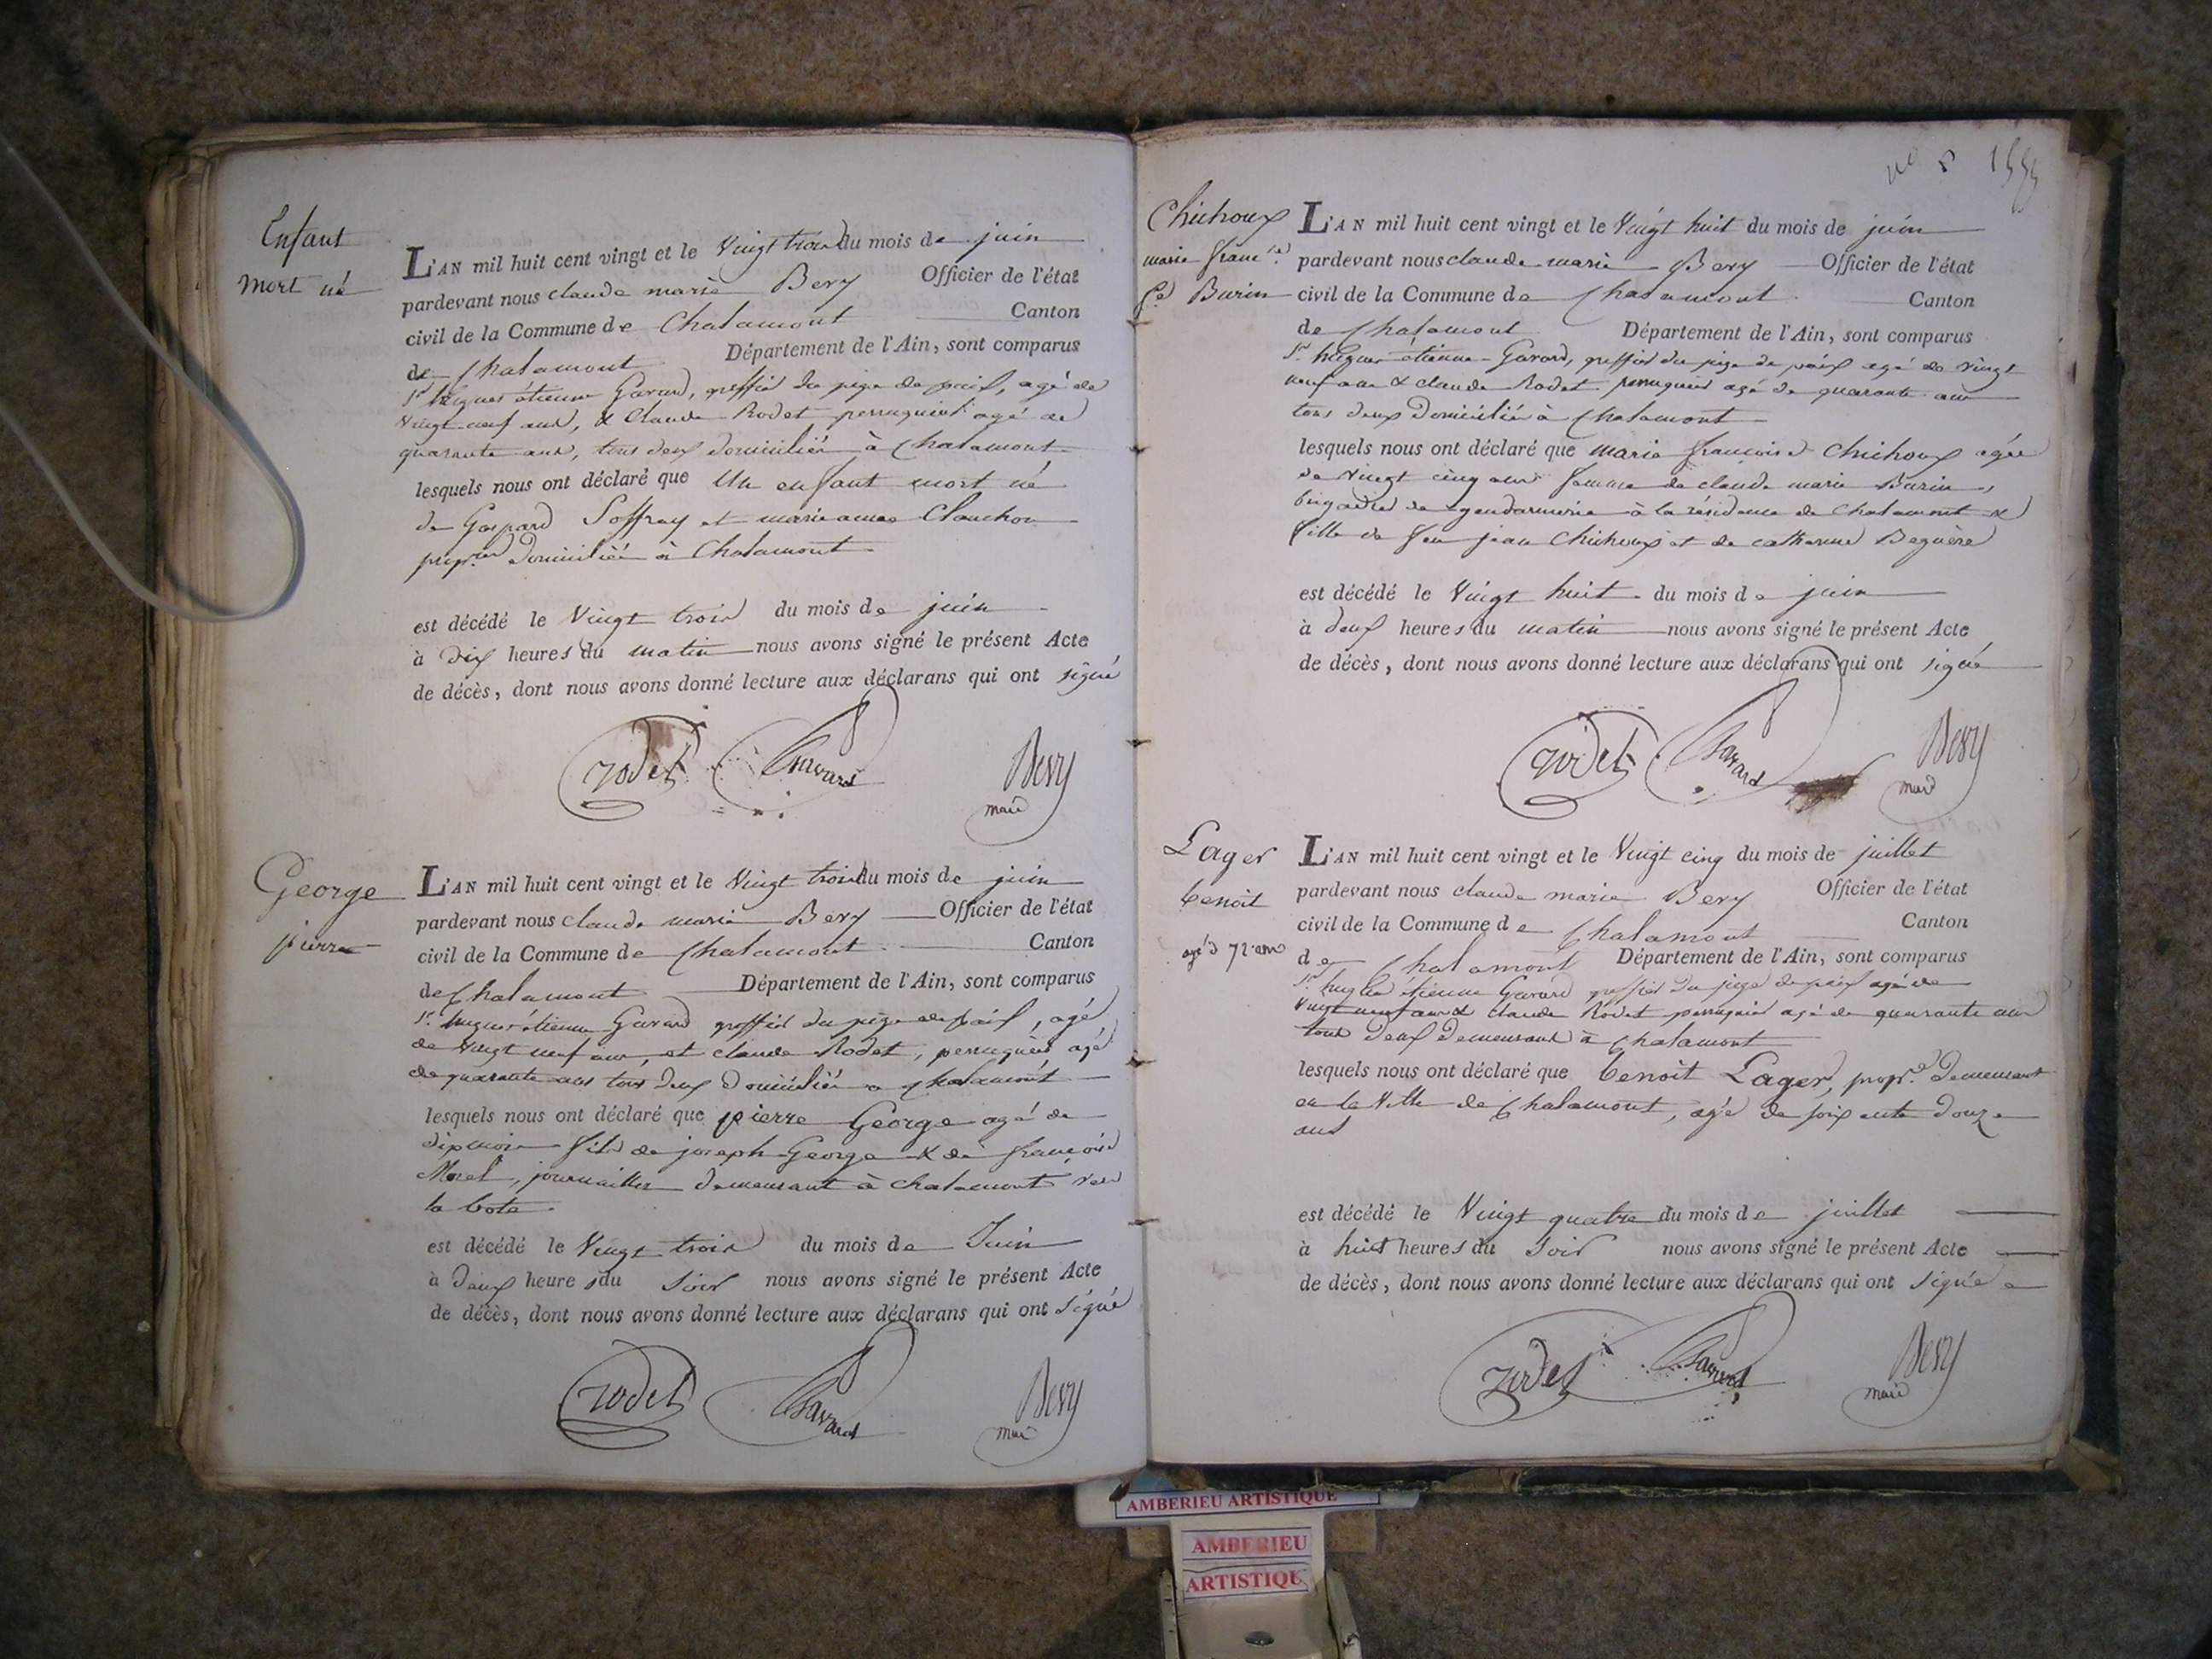 Enfant
Mort né
L'AN mil huit cent vingt et le Vingt trois du mois de juin
pardevant nous claude marie Bery Officier de l'état
civil de la Commune de Chalamont Canton
de Chalamont Département de l'Ain, sont comparus
Sr hugues étienne Gavard, greffier du juge de paix, agé de
vingt neuf ans, & Claude Rodet perruquier agé de
quarante ans, tous deux domiciliés à Chalamont
lesquels nous ont déclaré que Un enfant mort né
de Gaspard Soffray et marie
propres domiciliés à Chalamont
est décédé le Vingt trois du mois de juin
à dix heures du matin nous avons signé le présent Acte
de décès, dont nous avons donné lecture aux déclarans qui ont signé
rodet Gavard Bery
maire
George
pierre
L'AN mil huit cent vingt et le Vingt trois du mois de juin
pardevant nous claude marie Bery Officier de l'état
civil de la Commune de Chalamont Canton
de Chalamont Département de l'Ain, sont comparus
Sr hugues étienne Gavard greffier du juge de paix, agé
de vingt neuf ans, et claude Rodet, perruquier, agé
de quarante ans tous deux domiciliés a Chalamont
lesquels nous ont déclaré que pierre George agé de
mois fils de joseph George & de françoise
Morel, journaliers demeurant à chalamont
la
est décédé le Vingt trois du mois de Juin
à deux heures du soir nous avons signé le présent Acte
de décès, dont nous avons donné lecture aux déclarans qui ont signé
rodet Gavard Bery
maire
no 5
Chichoux
marie françse
fe Burin
L'AN mil huit cent vingt et le Vingt huit du mois de juin
pardevant nous claude marie Bery Officier de l'état
civil de la Commune de Chalamont Canton
de Chalamont Département de l'Ain, sont comparus
Sr hugues étienne Gavard, greffier du juge de paix agé de vingt
neuf ans & claude Rodet perruquier agé de quarante ans
tous deux domiciliés à Chalamont
lesquels nous ont déclaré que marie françoise Chichoux agée
de vingt cinq ans femme de claude marie Burin,
brigadier de gendarmerie à la résidence de Chalamont &
fille de feu jean Chichoux et de catherine Beguère
est décédé le Vingt huit du mois de juin
à deux heures du matin nous avons signé le présent Acte
de décès, dont nous avons donné lecture aux déclarans qui ont signé
rodet Gavard Bery
maire
Lager
benoit
agé d 72 ans
L'AN mil huit cent vingt et le Vingt cinq du mois de juillet
pardevant nous claude marie Bery Officier de l'état
civil de la Commune de Chalamont Canton
de Chalamont Département de l'Ain, sont comparus
Sr hugues étienne Gavard greffier du juge de paix agé de
vingt neuf ans & claude Rodet perruquier agé de quarante ans
tous deux demeurant à Chalamont
lesquels nous ont déclaré que benoit Lager, propre demeurant
en la Ville de Chalamont, agé de soixante douze
ans
est décédé le Vingt quatre du mois de juillet
à huit heures du soir nous avons signé le présent Acte
de décès, dont nous avons donné lecture aux déclarans qui ont signé
rodet Gavard Bery
maire
AMBERIEU ARTISTIQUE
AMBERIEU
ARTISTIQU